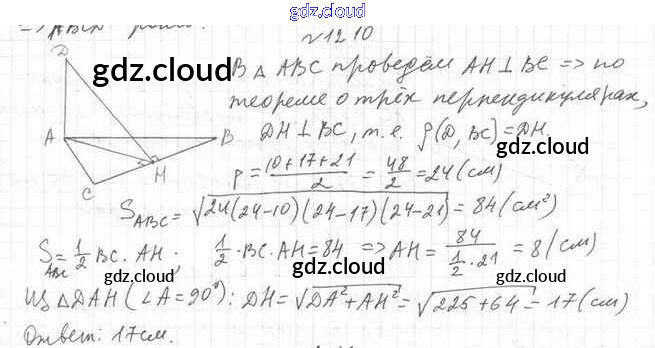 gdz.cloud
=> ABCD
№1210
D
gdz.cloud
В △ ABC проведём AH⊥BC => по
теореме о трёх перпендикулярах,
A
B
DH⊥BC, т.е. ρ(D, BC)=DH.
gdz.cloud
H
C
p = (10+17+21)/2 = 48/2 = 24 (см)
S_ABC = √(24(24-10)(24-17)(24-21)) = 84 (см²)
S_ABC = 1/2 BC·AH; 1/2·BC·AH=84 => AH = 84/(1/2·21) = 8 (см)
gdz.cloud gdz.cloud gdz.cloud
Из △DAH (∠A=90°): DH=√(DA²+AH²)=√(225+64)=17(см)
Ответ: 17см.
gdz.cloud